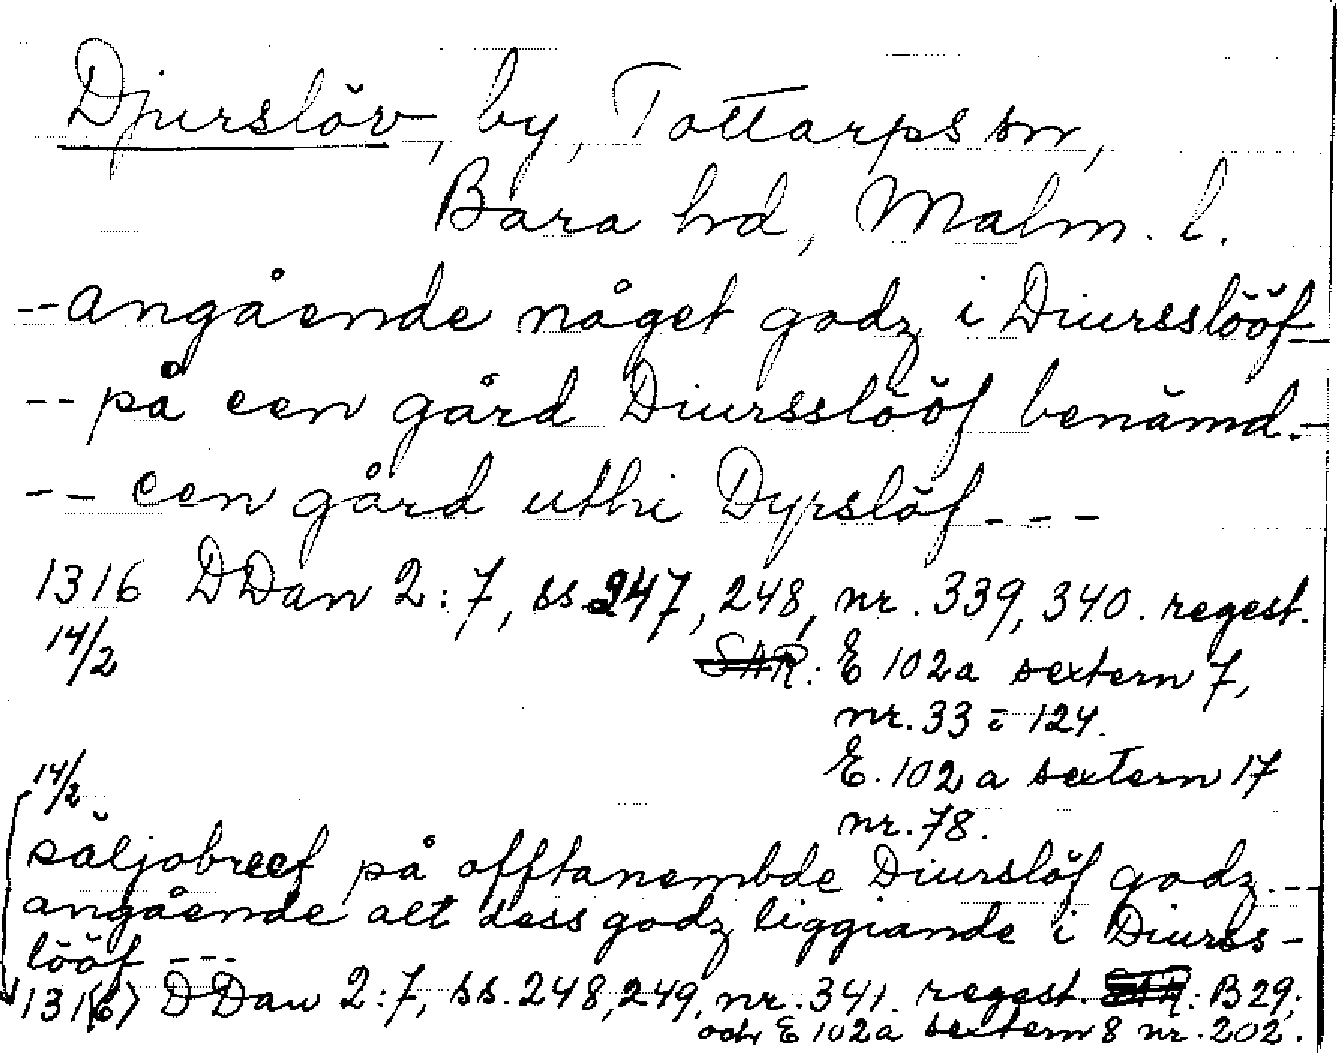 Djurslöv, by, Tottarps sn,
Bara hd, Malm. l.
-- angående någet godz i Diursslööf --
-- på een gård Diursslööf benämd. --
-- een gård uthi Dyrslöf - - -
1316 DDan 2:7, ss 247, 248, nr. 339, 340. regest.
14/2 SAR: E 102a sextern 7,
nr. 33 i 124.
E. 102 a sextern 17
nr. 78.
14/2
säljobreef på offtanembde Diurslöf godz. --
angående alt dess godz liggiande i Diurss-
lööf ---
131(6) DDan 2:7, ss. 248, 249, nr. 341. regest : B 29;
och E 102a sextern 8 nr. 202.